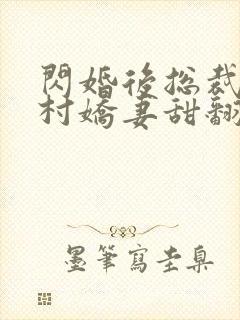 閃婚後總裁
村嬌妻甜翻
墨筆寫圭臬